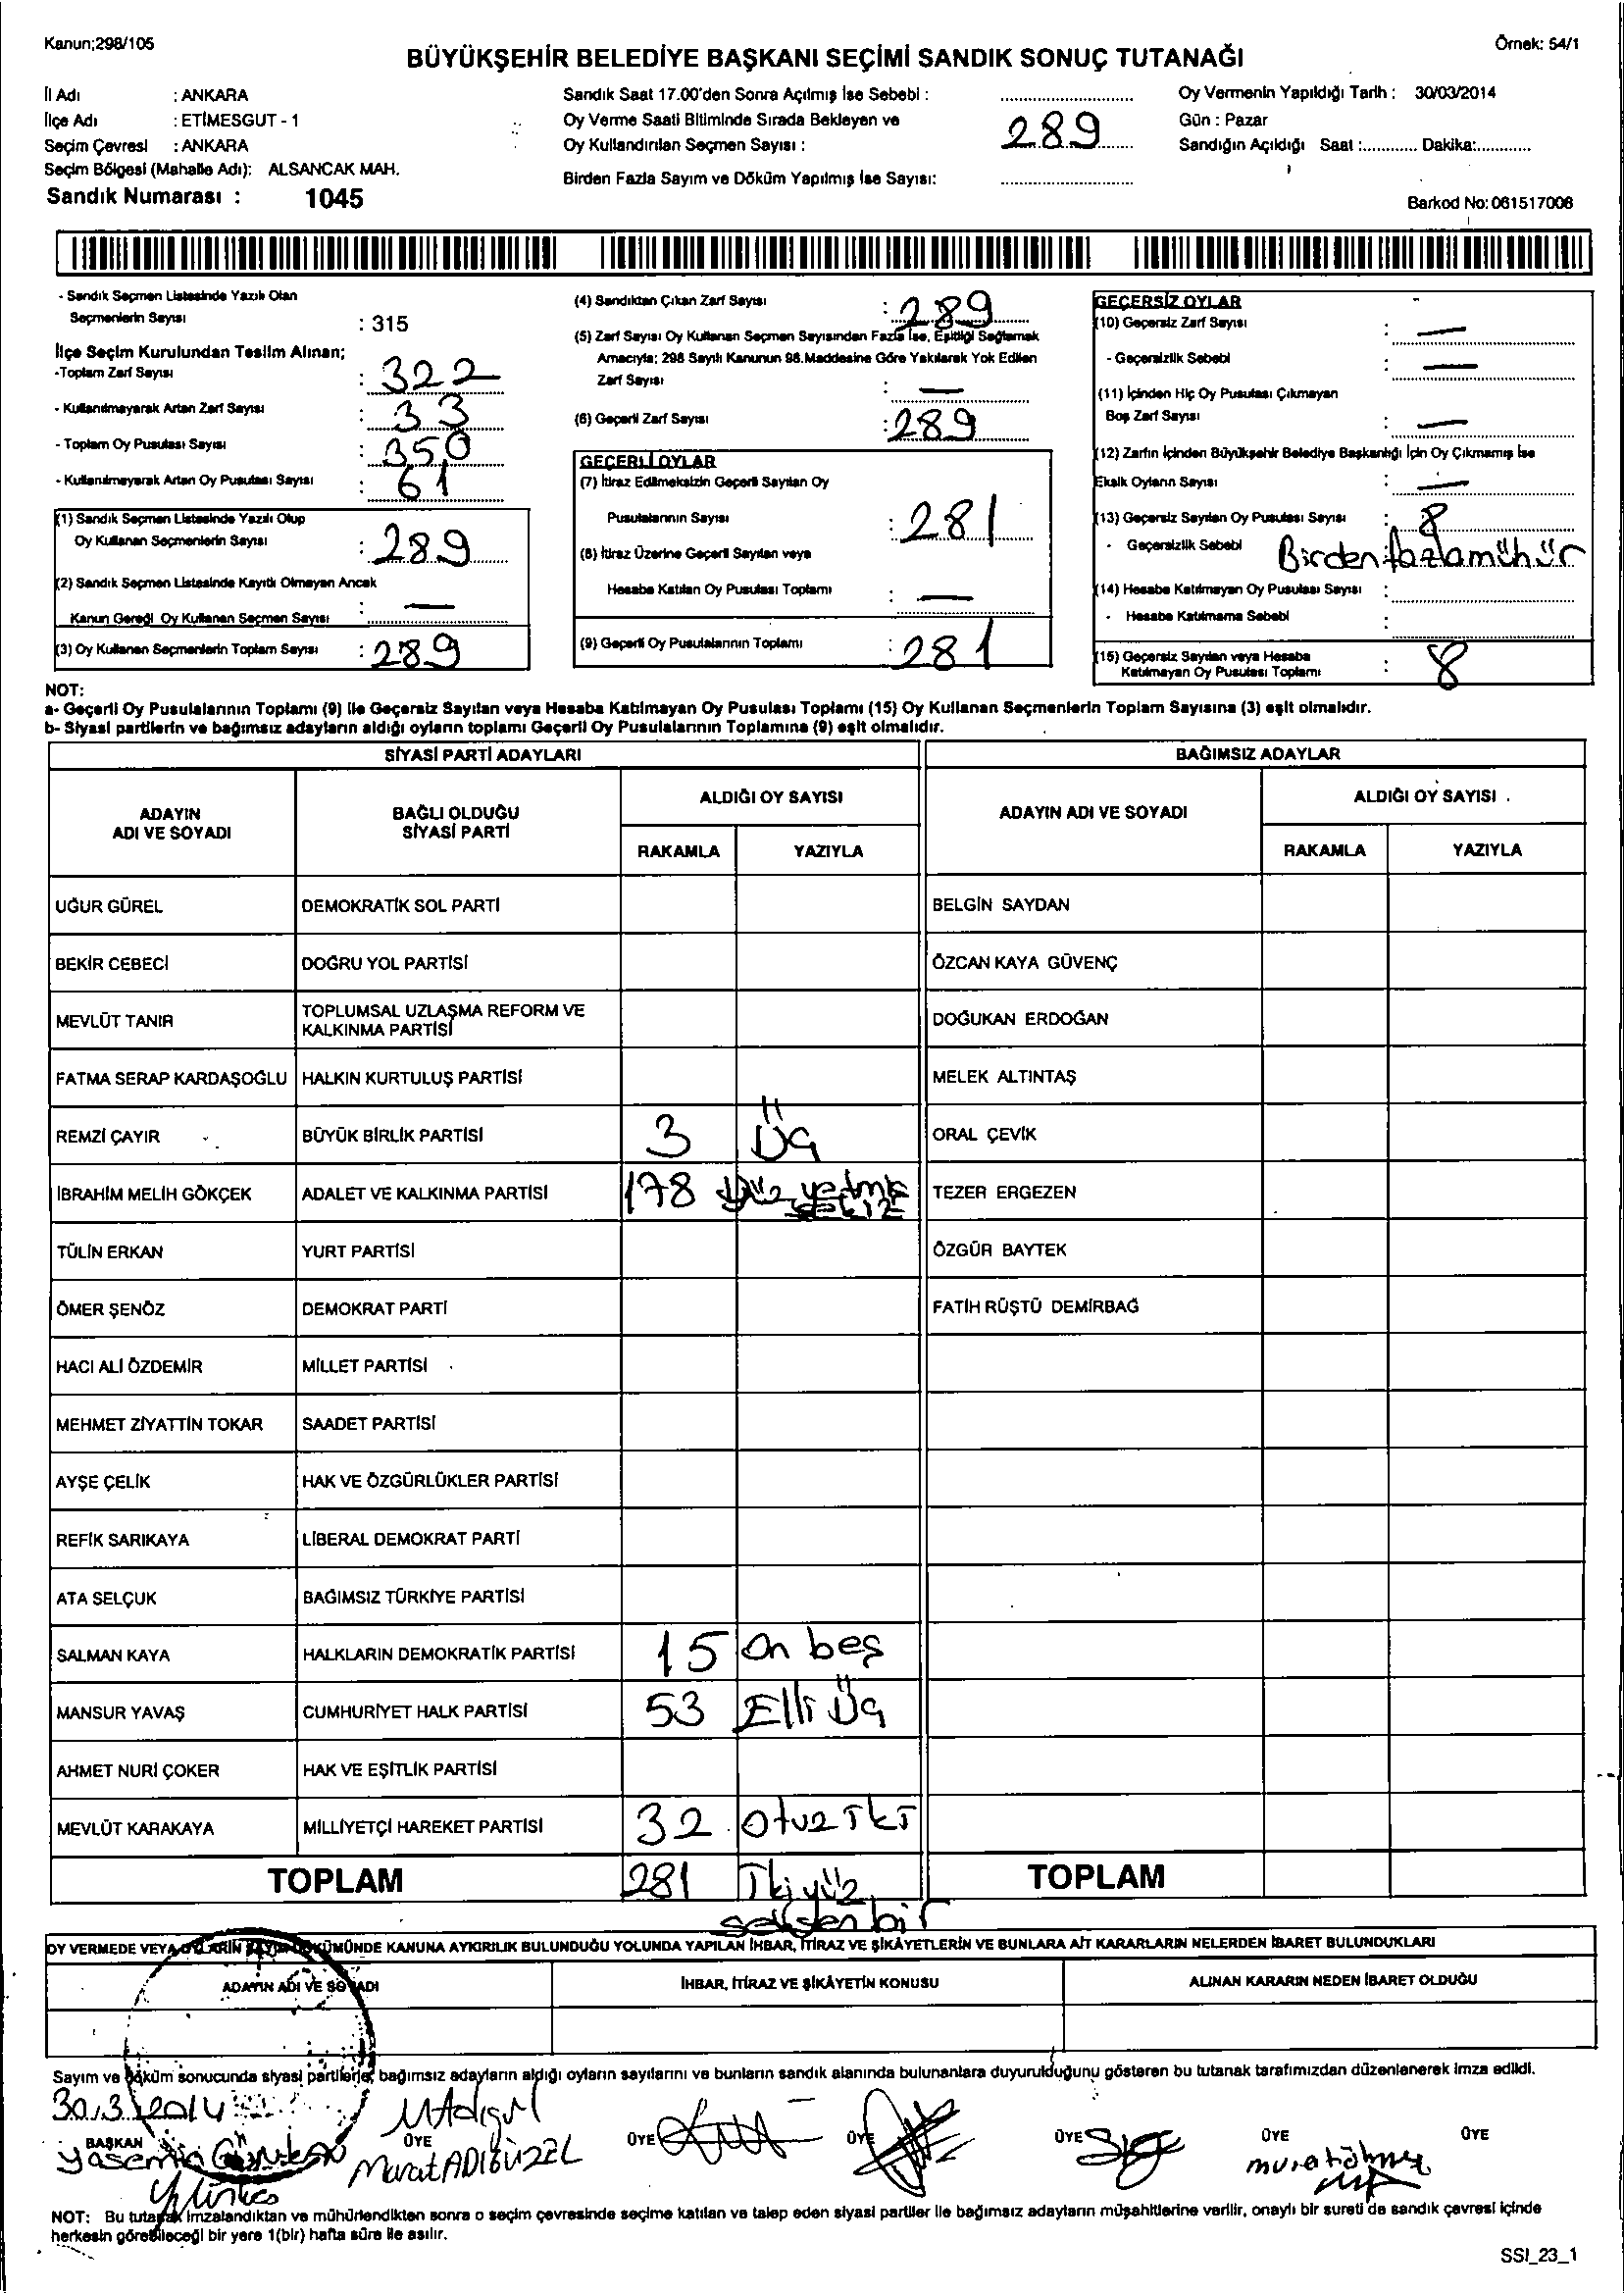 Kanun;298/105
Örnek: 54/1
BÜYÜKŞEHİR BELEDİYE BAŞKANI SEÇİMİ SANDIK SONUÇ TUTANAĞI
İl Adı : ANKARA
İlçe Adı : ETİMESGUT - 1
Seçim Çevresi : ANKARA
Seçim Bölgesi (Mahalle Adı): ALSANCAK MAH.
Sandık Numarası : 1045
Sandık Saat 17.00'den Sonra Açılmış İse Sebebi :
Oy Verme Saati Bitiminde Sırada Bekleyen ve
Oy Kullandırılan Seçmen Sayısı : 289
Birden Fazla Sayım ve Döküm Yapılmış İse Sayısı:
Oy Vermenin Yapıldığı Tarih : 30/03/2014
Gün : Pazar
Sandığın Açıldığı Saat :............ Dakika:............
Barkod No: 061517008
- Sandık Seçmen Listesinde Yazılı Olan
Seçmenlerin Sayısı : 315
İlçe Seçim Kurulundan Teslim Alınan;
-Toplam Zarf Sayısı : 322
- Kullanılmayarak Artan Zarf Sayısı : 33
- Toplam Oy Pusulası Sayısı : 350
- Kullanılmayarak Artan Oy Pusulası Sayısı : 61
(1) Sandık Seçmen Listesinde Yazılı Olup
Oy Kullanan Seçmenlerin Sayısı : 289
(2) Sandık Seçmen Listesinde Kayıtlı Olmayan Ancak
Kanun Gereği Oy Kullanan Seçmen Sayısı : —
(3) Oy Kullanan Seçmenlerin Toplam Sayısı : 289
(4) Sandıktan Çıkan Zarf Sayısı : 289
(5) Zarf Sayısı Oy Kullanan Seçmen Sayısından Fazla İse, Eşitliği Sağlamak
Amacıyla; 298 Sayılı Kanunun 98.Maddesine Göre Yakılarak Yok Edilen
Zarf Sayısı : —
(6) Geçerli Zarf Sayısı : 289
GEÇERLİ OYLAR
(7) İtiraz Edilmeksizin Geçerli Sayılan Oy
Pusulalarının Sayısı : 281
(8) İtiraz Üzerine Geçerli Sayılan veya
Hesaba Katılan Oy Pusulası Toplamı : —
(9) Geçerli Oy Pusulalarının Toplamı : 281
GEÇERSİZ OYLAR
(10) Geçersiz Zarf Sayısı : —
- Geçersizlik Sebebi : —
(11) İçinden Hiç Oy Pusulası Çıkmayan
Boş Zarf Sayısı : —
(12) Zarfın İçinden Büyükşehir Belediye Başkanlığı İçin Oy Çıkmamış İse
Eksik Oyların Sayısı : —
(13) Geçersiz Sayılan Oy Pusulası Sayısı : 8
- Geçersizlik Sebebi Birden fazla mühür
(14) Hesaba Katılmayan Oy Pusulası Sayısı :
- Hesaba Katılmama Sebebi :
(15) Geçersiz Sayılan veya Hesaba
Katılmayan Oy Pusulası Toplamı : 8
NOT:
a- Geçerli Oy Pusulalarının Toplamı (9) ile Geçersiz Sayılan veya Hesaba Katılmayan Oy Pusulası Toplamı (15) Oy Kullanan Seçmenlerin Toplam Sayısına (3) eşit olmalıdır.
b- Siyasi partilerin ve bağımsız adayların aldığı oyların toplamı Geçerli Oy Pusulalarının Toplamına (9) eşit olmalıdır.
SİYASİ PARTİ ADAYLARI BAĞIMSIZ ADAYLAR
ADAYIN ADI VE SOYADI BAĞLI OLDUĞU SİYASİ PARTİ ALDIĞI OY SAYISI ADAYIN ADI VE SOYADI ALDIĞI OY SAYISI
RAKAMLA YAZIYLA RAKAMLA YAZIYLA
UĞUR GÜREL DEMOKRATİK SOL PARTİ BELGİN SAYDAN
BEKİR CEBECİ DOĞRU YOL PARTİSİ ÖZCAN KAYA GÜVENÇ
MEVLÜT TANIR TOPLUMSAL UZLAŞMA REFORM VE KALKINMA PARTİSİ DOĞUKAN ERDOĞAN
FATMA SERAP KARDAŞOĞLU HALKIN KURTULUŞ PARTİSİ MELEK ALTINTAŞ
REMZİ ÇAYIR BÜYÜK BİRLİK PARTİSİ 3 Üç ORAL ÇEVİK
İBRAHİM MELİH GÖKÇEK ADALET VE KALKINMA PARTİSİ 178 yüz yetmiş sekiz TEZER ERGEZEN
TÜLİN ERKAN YURT PARTİSİ ÖZGÜR BAYTEK
ÖMER ŞENÖZ DEMOKRAT PARTİ FATİH RÜŞTÜ DEMİRBAĞ
HACI ALİ ÖZDEMİR MİLLET PARTİSİ
MEHMET ZİYATTİN TOKAR SAADET PARTİSİ
AYŞE ÇELİK HAK VE ÖZGÜRLÜKLER PARTİSİ
REFİK SARIKAYA LİBERAL DEMOKRAT PARTİ
ATA SELÇUK BAĞIMSIZ TÜRKİYE PARTİSİ
SALMAN KAYA HALKLARIN DEMOKRATİK PARTİSİ 15 On beş
MANSUR YAVAŞ CUMHURİYET HALK PARTİSİ 53 Elli Üç
AHMET NURİ ÇOKER HAK VE EŞİTLİK PARTİSİ
MEVLÜT KARAKAYA MİLLİYETÇİ HAREKET PARTİSİ 32 Otuz İki
TOPLAM 281 İki yüz seksen bir TOPLAM
OY VERMEDE VEYA OYLARIN SAYIM DÖKÜMÜNDE KANUNA AYKIRILIK BULUNDUĞU YOLUNDA YAPILAN İHBAR, İTİRAZ VE ŞİKÂYETLERİN VE BUNLARA AİT KARARLARIN NELERDEN İBARET BULUNDUKLARI
ADAYIN ADI VE SOYADI İHBAR, İTİRAZ VE ŞİKÂYETİN KONUSU ALINAN KARARIN NEDEN İBARET OLDUĞU
Sayım ve döküm sonucunda siyasi partilerle, bağımsız adayların aldığı oyların sayılarını ve bunların sandık alanında bulunanlara duyurulduğunu gösteren bu tutanak tarafımızdan düzenlenerek imza edildi.
30.3.2014
BAŞKAN ÜYE ÜYE ÜYE ÜYE ÜYE ÜYE
Yasemin
Murat ADIGÜZEL
NOT: Bu tutanak imzalandıktan ve mühürlendikten sonra o seçim çevresinde seçime katılan ve talep eden siyasi partiler ile bağımsız adayların müşahitlerine verilir, onaylı bir sureti de sandık çevresi içinde
herkesin görebileceği bir yere 1(bir) hafta süre ile asılır.
SSI_23_1